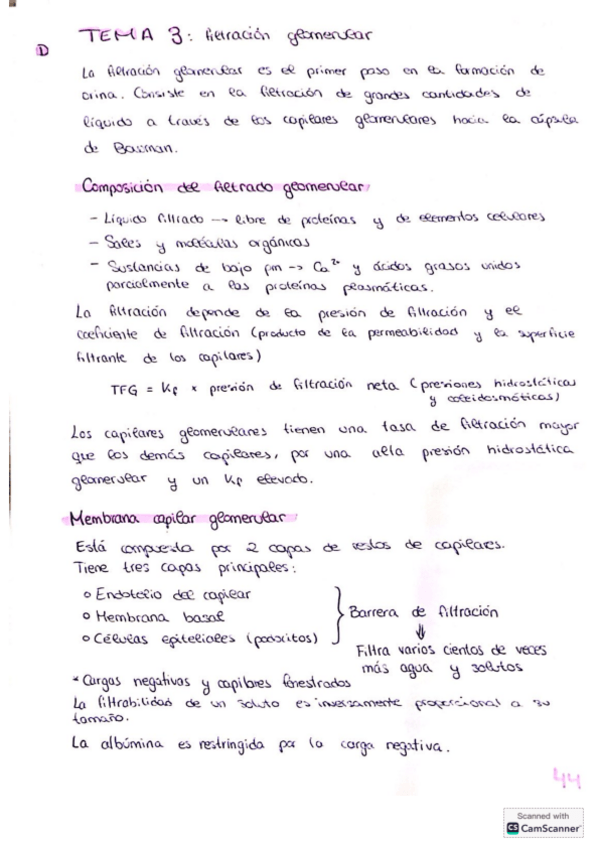 TEMA 3: filtración glomerular
①
La filtración glomerular es el primer paso en la formación de
orina. Consiste en la filtración de grandes cantidades de
líquido a través de los capilares glomerulares hacia la cápsula
de Bowman.
Composición del filtrado glomerular
- Líquido filtrado → libre de proteínas y de elementos celulares
- Sales y moléculas orgánicas
- Sustancias de bajo pm → Ca²⁺ y ácidos grasos unidos
parcialmente a las proteínas plasmáticas.
La filtración depende de la presión de filtración y el
coeficiente de filtración (producto de la permeabilidad y la superficie
filtrante de los capilares)
TFG = Kf × presión de filtración neta (presiones hidrostáticas
y coloidosmóticas)
Los capilares glomerulares tienen una tasa de filtración mayor
que los demás capilares, por una alta presión hidrostática
glomerular y un Kf elevado.
Membrana capilar glomerular
Está compuesta por 2 capas de restos de capilares.
Tiene tres capas principales:
○ Endotelio del capilar
○ Membrana basal
○ Células epiteliales (podocitos)
Barrera de filtración
⇓
Filtra varios cientos de veces
más agua y solutos
* Cargas negativas y capilares fenestrados
La filtrabilidad de un soluto es inversamente proporcional a su
tamaño.
La albúmina es restringida por la carga negativa.
44
Scanned with
CS CamScanner